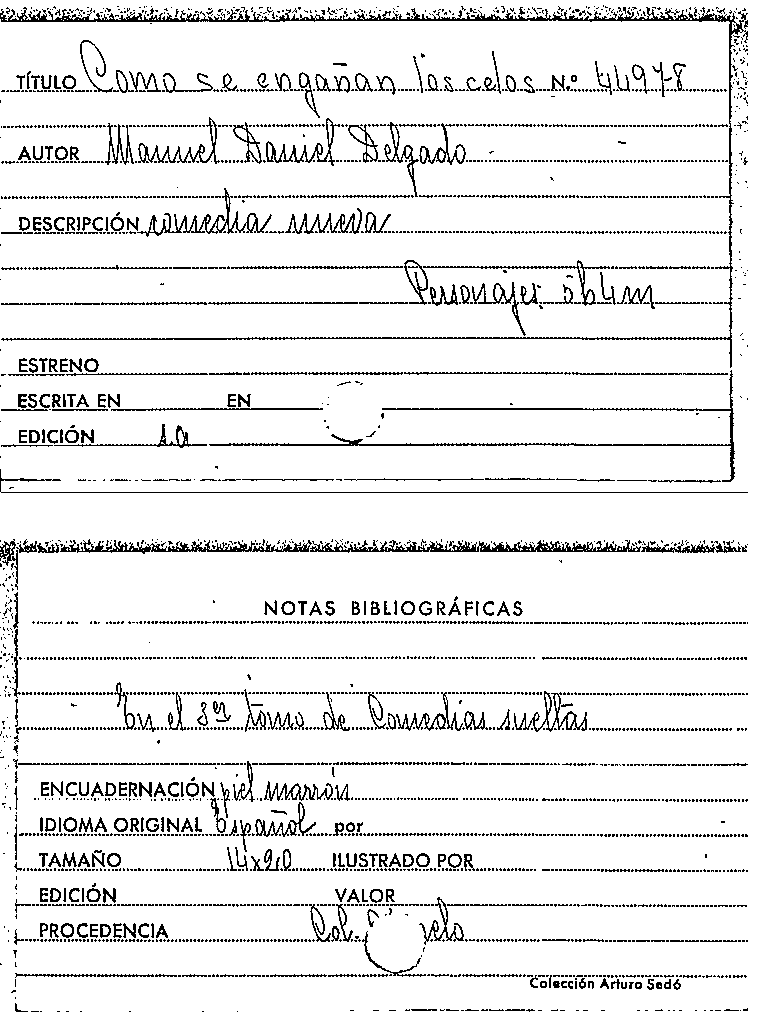 TÍTULO Como se engañan los celos N.º 44978
AUTOR Manuel Daniel Delgado
DESCRIPCIÓN comedia nueva
Personajes: 5h4m
ESTRENO
ESCRITA EN EN
EDICIÓN 1.a
NOTAS BIBLIOGRÁFICAS
En el 3er tomo de Comedias sueltas
ENCUADERNACIÓN piel marrón
IDIOMA ORIGINAL Español por
TAMAÑO 14x20 ILUSTRADO POR
EDICIÓN VALOR
PROCEDENCIA Col.
Colección Arturo Sedó